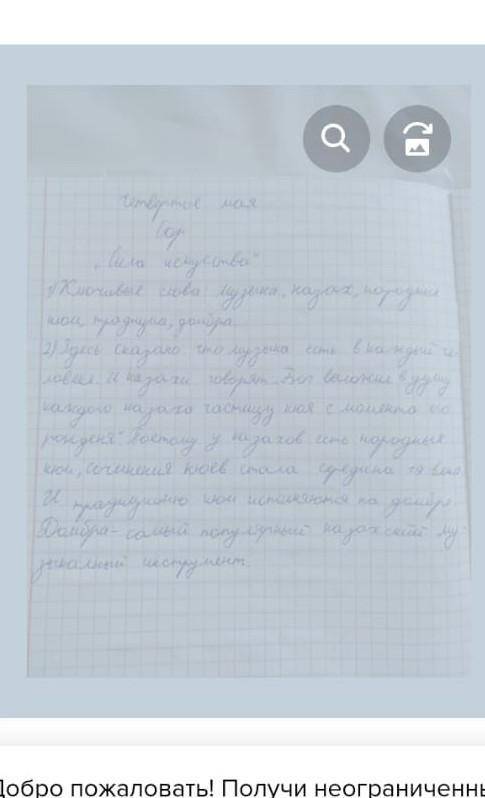 Четвертое мая
Сор
"Сила искуства"
1) Ключивые слова: Музыка, казах, народные
кюи, традиция, домбра.
2) Здесь сказано что музыка есть в каждый че-
ловеке. И казахи говорят "Бог вложил в душу
каждого казаха частицу кюя с момента его
рожденя". Поетому у казахов есть народные
кюи, сочинения кюев стала середина 19 века
И традиционно кюи исполняются на домбре
Домбра - самый популярный казахский му-
зыкалный инструмент.
Добро пожаловать! Получи неограниченны